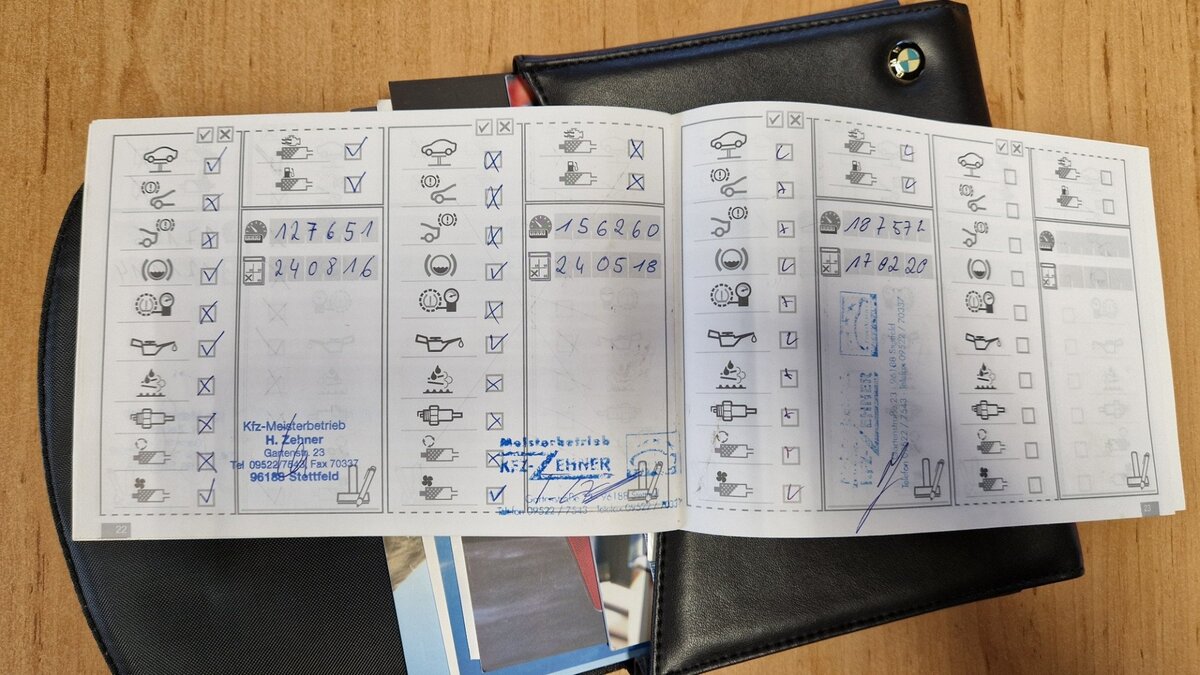 127651
240816
Kfz-Meisterbetrieb
H. Zehner
Gartenstr. 23
Tel 09522/7543, Fax 70337
96188 Stettfeld
22
156260
240518
Meisterbetrieb
KFZ-ZEHNER
96188
Telefon 09522 / 7543 - Telefax 09522 / 70337
187572
170220
96188 Stettfeld
Telefon 09522 / 7543 - Telefax 09522 / 70337
23